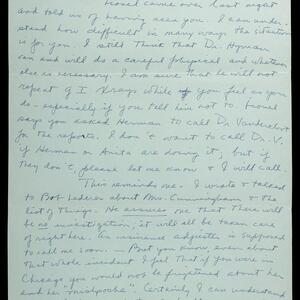 Leonel came over last night
and told us of having seen you. I can under-
stand how difficult in many ways the situation
is for you. I still think that Dr. Hyman
can and will do a careful physical and whatever
else is necessary. I am sure that he will not
repeat G I Xrays while you feel as you
do - especially if you tell him not to. Leonel
says you asked Herman to call Dr. Vanderbilt
for the reports. I don't want to call Dr. V.
if Herman or Anita are doing it, but if
they don't, please let me know & I will call.
This reminds me. I wrote & talked
to Bob Lederer about Mrs. Cunningham & the
list of things. He assures me that there will
be no investigation; it will all be taken care
of right here. An insurance adjuster is supposed
to call me soon. But you know, even about
that whole incident I feel that if you were in
Chicago you would not be frightened about her
and her "mishpoche". Certainly I can understand